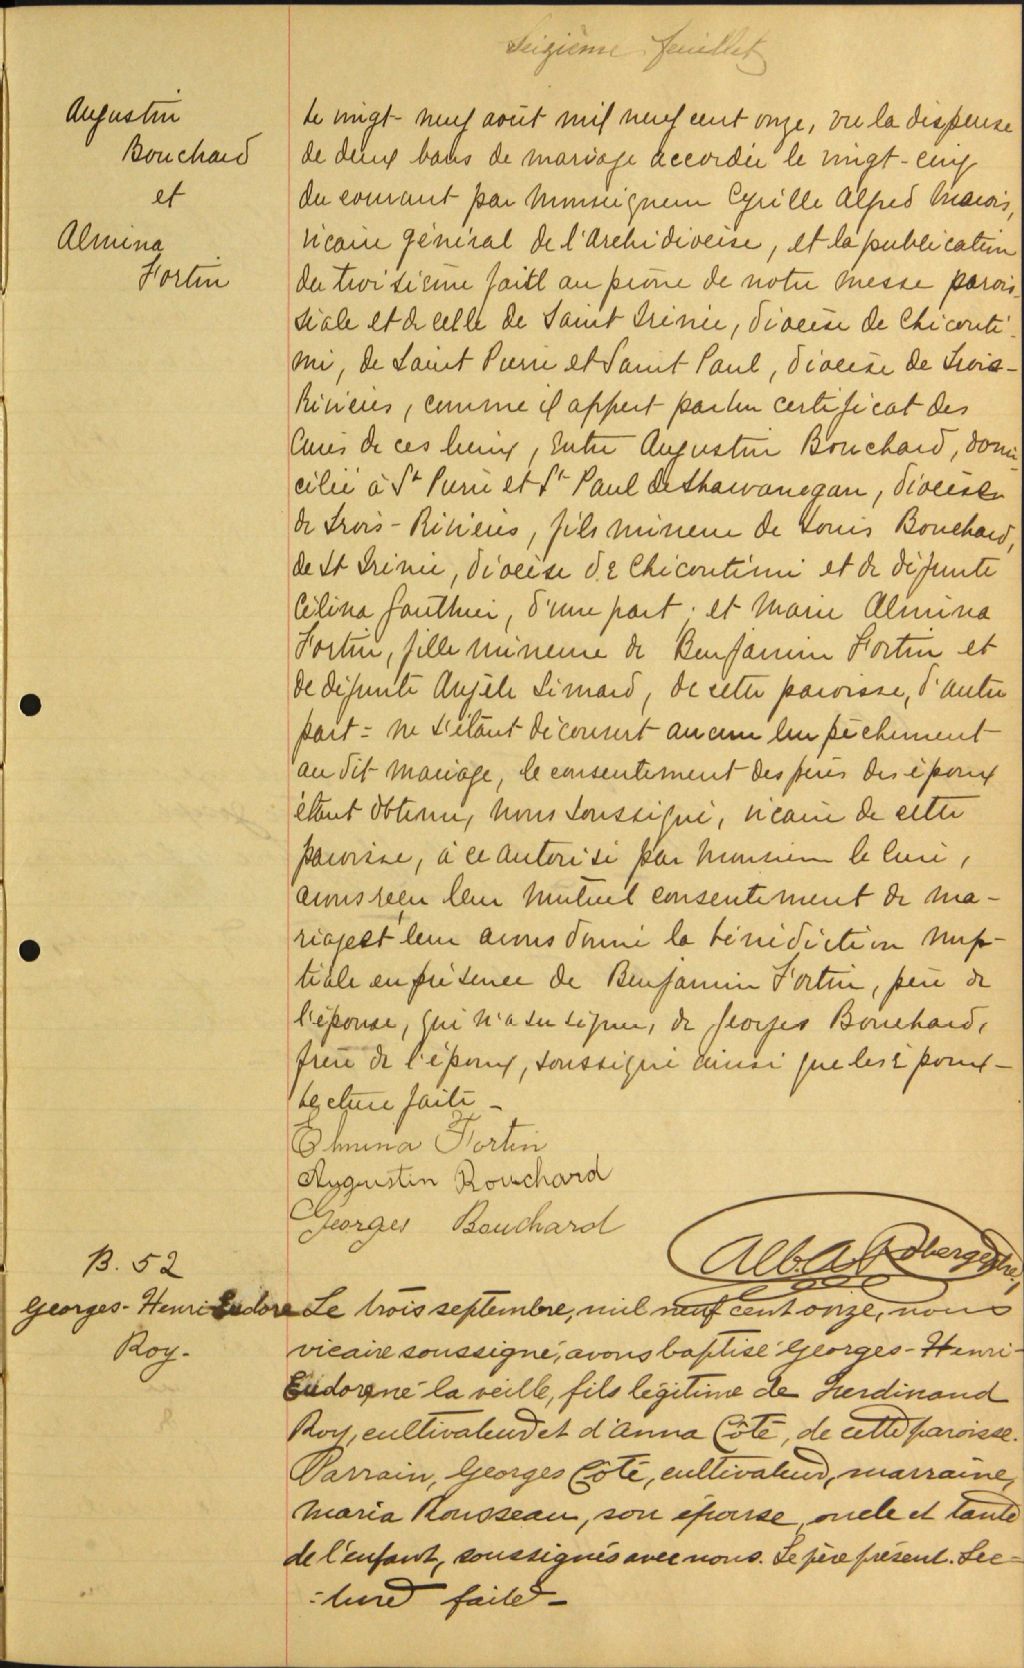 Seizième feuillet
Augustin
Bouchard
et
Almina
Fortin
Le vingt-neuf août mil neuf cent onze, vu la dispense
de deux bans de mariage accordée le vingt-cinq
du courant par Monseigneur Cyrille Alfred Marois,
vicaire général de l'Archidiocèse, et la publication
du troisième faite au prône de notre messe parois-
siale et de celle de Saint Irénée, diocèse de Chicouti-
mi, de Saint Pierre et Saint Paul, diocèse de Trois-
Rivières, comme il appert par un certificat des
Curés de ces lieux, entre Augustin Bouchard, domi-
cilié à St Pierre et St Paul de Shawanegan, diocèse
de Trois-Rivières, fils mineur de Louis Bouchard,
de St Irénée, diocèse de Chicoutimi et de défunte
Célina Gauthier, d'une part; et Marie Almina
Fortin, fille mineure de Benjamin Fortin et
de défunte Angèle Simard, de cette paroisse, d'autre
part = ne s'étant découvert aucun empêchement
au dit mariage, le consentement des pères des époux
étant obtenu, nous soussigné, vicaire de cette
paroisse, à ce autorisé par Monsieur le Curé,
avons reçu leur mutuel consentement de ma-
riage et leur avons donné la bénédiction nup-
tiale en présence de Benjamin Fortin, père de
l'épouse, qui n'a su signer, de Georges Bouchard,
frère de l'époux, soussigné ainsi que les époux-
Lecture faite -
Elmina Fortin
Augustin Bouchard
Georges Bouchard
Alb. A. Roberge Ptre,
B. 52
Georges-Henri-Eudore
Roy.
Le trois septembre, mil neuf cent onze, nous
vicaire soussigné, avons baptisé Georges-Henri-
Eudore, né la veille, fils légitime de Ferdinand
Roy, cultivateur et d'Anna Côté, de cette paroisse.
Parrain, Georges Côté, cultivateur, marraine,
Maria Rousseau, son épouse, oncle et tante
de l'enfant, soussignés avec nous. Le père présent. Lec=
=ture faite -